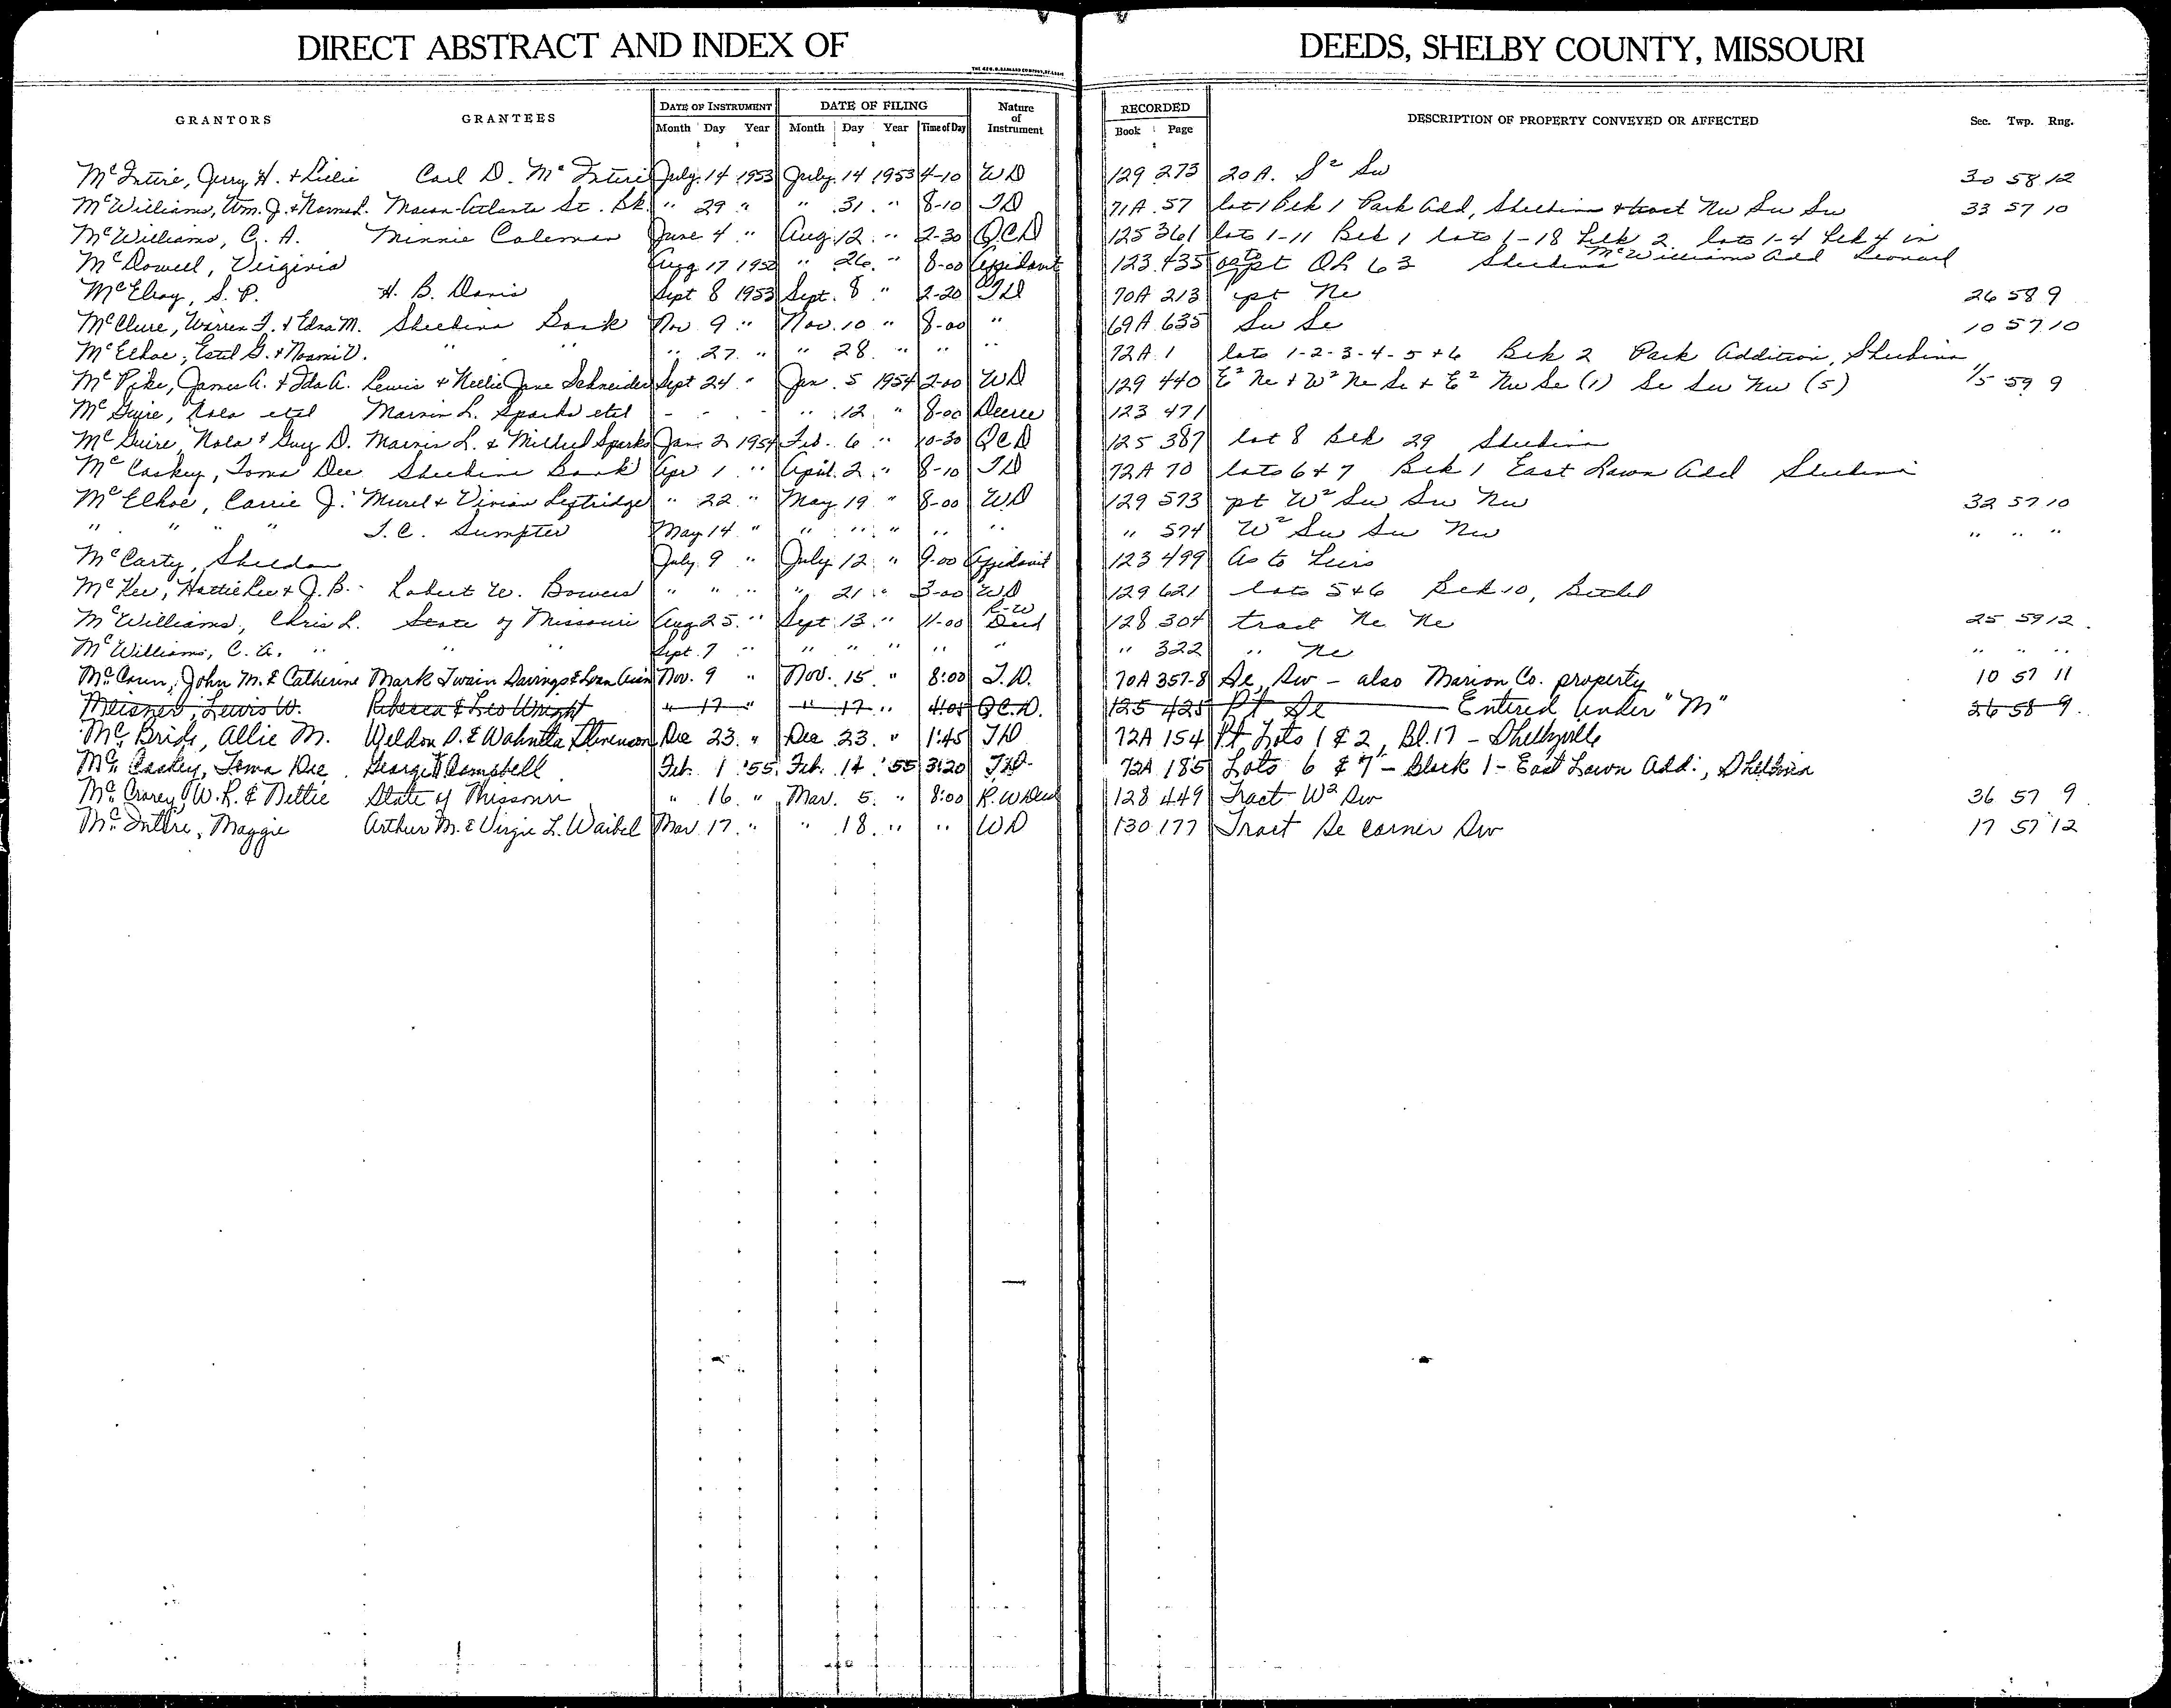 DIRECT ABSTRACT AND INDEX OF DEEDS, SHELBY COUNTY, MISSOURI
GRANTORS GRANTEES DATE OF INSTRUMENT Month Day Year DATE OF FILING Month Day Year Time of Day Nature of Instrument RECORDED Book Page DESCRIPTION OF PROPERTY CONVEYED OR AFFECTED Sec. Twp. Rng.
McIntire, Jerry H. + Lillie Carl D. McIntire July 14 1953 July 14 1953 4-10 WD 129 273 20A. S² Sw 30 58 12
McWilliams, Wm. J. + Norma L. Macon-Atlanta St. Bk. " 29 " " 31 " 8-10 TD 71A 57 lot 1 Blk 1 Park Add, Shelbina + tract Nw Sw Sw 33 57 10
McWilliams, C. A. Minnie Coleman June 4 " Aug 12 " 2-30 QCD 125 361 lots 1-11 Blk 1 lots 1-18 Blk 2 lots 1-4 Blk 4 in McWilliams Add Leonard
McDowell, Virginia Aug 17 1952 " 26 " 8-00 Affidavit 123 435 as to pt OL 63 Shelbina
McElroy, S. P. H. B. Davis Sept 8 1953 Sept. 8 " 2-20 TD 70A 213 pt Ne 26 58 9
McClure, Warren F. + Edna M. Shelbina Bank Nov 9 " Nov. 10 " 8-00 " 69A 635 Sw Se 10 57 10
McElhoe, Estel G. + Naomi V. " " " 27 " " 28 " " " 72A 1 lots 1-2-3-4-5+6 Blk 2 Park Addition, Shelbina
McPike, James A. + Ida A. Lewis + Nellie Jane Schneider Sept 24 " Jan. 5 1954 2-00 WD 129 440 E² Ne + W² Ne Se + E² Nw Se (1) Se Sw Nw (5) 1/5 59 9
McGuire, Nola etal Marvin L. Sparks etal - - - " 12 " 8-00 Decree 123 471
McGuire, Nola + Guy D. Marvin L. + Mildred Sparks Jan. 2 1954 Feb. 6 " 10-30 QCD 125 387 lot 8 Blk 29 Shelbina
McCaskey, Toma Dee Shelbina Bank Apr 1 " April 2 " 8-10 TD 72A 70 lots 6+7 Blk 1 East Lawn Add Shelbina
McElhoe, Carrie J. Murel + Vivian Leftridge " 22 " May 19 " 8-00 WD 129 573 pt W² Sw Sw Nw 32 57 10
" " " " T. C. Sumpter May 14 " " " " " " " 574 W² Sw Sw Nw " " "
McCarty, Sheldon July 9 " July 12 " 9-00 Affidavit 123 499 As to
McKee, Hattie Lee + J. B. Robert W. Bowers " " " " 21 " 3-00 WD 129 621 lots 5+6 Blk 10, Bethel
McWilliams, Chris L. State of Missouri Aug 25 " Sept. 13 " 11-00 R-W Deed 128 304 tract Ne Ne 25 59 12
McWilliams, C. A. " " " Sept. 7 " " " " " " " 322 " Ne " " "
McCann, John M. & Catherine Mark Twain Savings & Loan Assn Nov. 9 " Nov. 15 " 8:00 T.D. 70A 357-8 Se, Sw - also Marion Co. property 10 57 11
Meisner, Lewis W. Rebecca & Leo Wright " 17 " " 17 " 4:05 Q.C.D. 125 425 Pt Se Entered under "M" 26 58 9
McBride, Allie M. Weldon D. & Wahnetta Stevenson Dec 23 " Dec 23 " 1:45 TD 72A 154 Pt. Lots 1 & 2, Bl. 17 - Shelbyville
McCaskey, Toma Dee George Campbell Feb. 1 '55 Feb. 14 '55 3:20 T.D. 72A 185 Lots 6 & 7 - Block 1 - East Lawn Add., Shelbina
McCrorey, W. R. & Nettie State of Missouri " 16 " Mar. 5 " 8:00 R. W Deed 128 449 Tract W² Sw 36 57 9
McIntire, Maggie Arthur M. & Virgie L. Waibel Mar. 17 " " 18 " " WD 130 177 Tract Se corner Sw 17 57 12